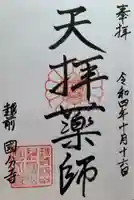 奉拝
令和四年十月十六日
天拝薬師
越前
國分寺